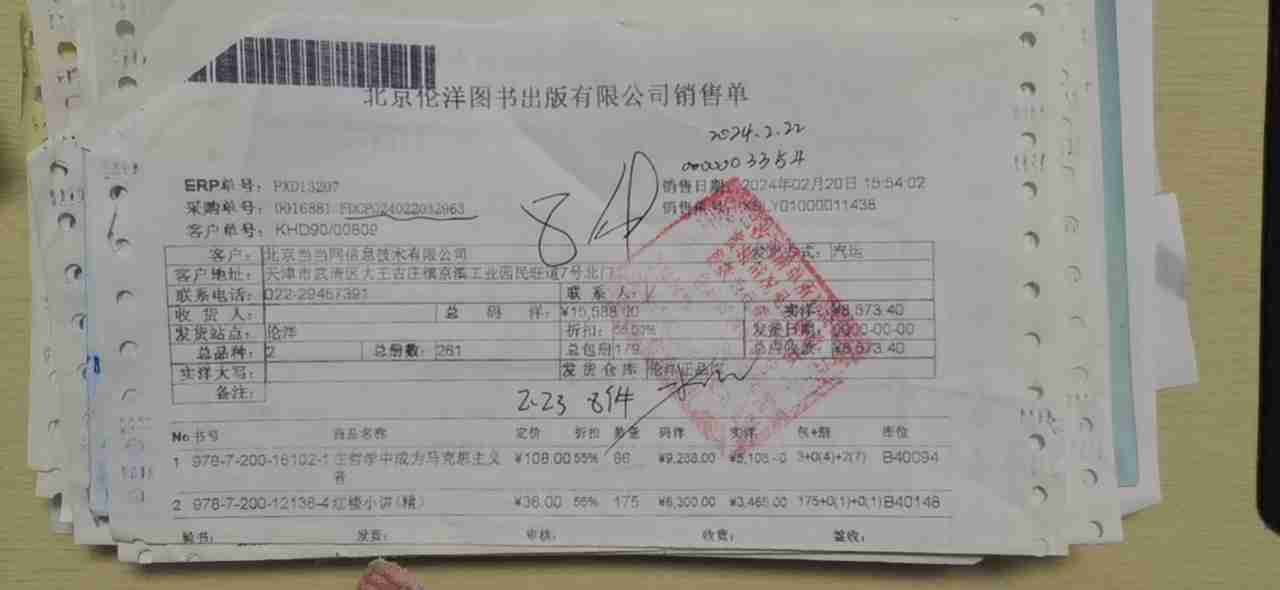 北京伦洋图书出版有限公司销售单
2024.2.22
0000003354
ERP单号: PXD13207 销售日期: 2024年02月20日 15:54:02
采购单号: 0016881 销售 XSLY01000011438
客户单号: KHD90/00809
8件
客户: 北京当当网信息技术有限公司 汽运
客户地址: 天津市武清区大王古庄镇京滨工业园民旺道7号北门
联系电话: 022-29457391 联系人:
收货人: 总码洋: ¥15,588.00 实洋: ¥8,573.40
发货站点: 伦洋 折扣: 55.00% 发票日期: 0000-00-00
总品种: 2 总册数: 261 总包册 179 ¥8,573.40
实洋大写: 发货仓库 伦洋正品
备注:
2.23 894
No 书号 商品名称 定价 折扣 数量 码洋 实洋 包+册 库位
1 978-7-200-16102-1 在哲学中成为马克思主义者 ¥108.00 55% 86 ¥9,288.00 3+0(4)+2(7) B40094
2 978-7-200-12138-4 红楼小讲(精) ¥36.00 55% 175 ¥6,300.00 ¥3,465.00 175+0(1)+0(1) B40148
验书: 发货: 审核: 收货: 签收: